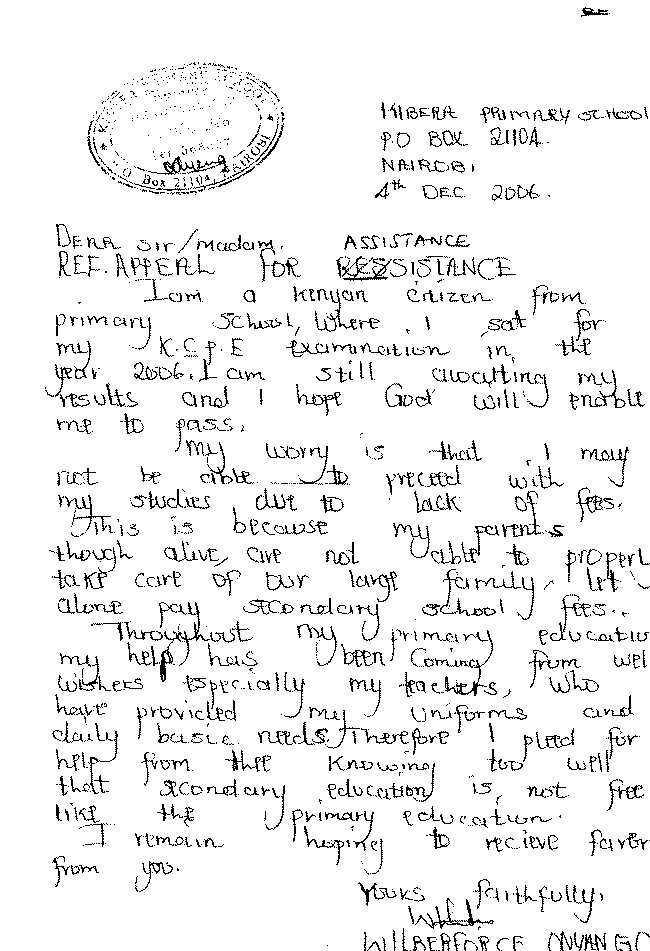 KIBERA PRIMARY SCHOOL
P.O BOX 21104, NAIROBI
KIBERA PRIMARY SCHOOL
P.O BOX 21104.
NAIROBI
4th DEC 2006.
DEAR Sir/Madam.
ASSISTANCE
REF. APPEAL FOR RESSISTANCE
I am a kenyan citizen from
primary school, where I sat for
my K.C.P.E examination in the
year 2006. I am still awaiting my
results and I hope God will enable
me to pass.
My worry is that I may
not be able to preceed with
my studies due to lack of fees.
This is because my parents
though alive, are not able to properl
take care of our large family, let
alone pay secondary school fees..
Throughout my primary educatio
my help has been coming from wel
wishers especially my teachers, who
have provided my uniforms and
daily basic needs. Therefore I plead for
help from thee knowing too well
that secondary education is not free
like the primary education.
I remain hoping to recieve favor
from you.
Yours faithfully,
WILLBERFORCE ONYANGO